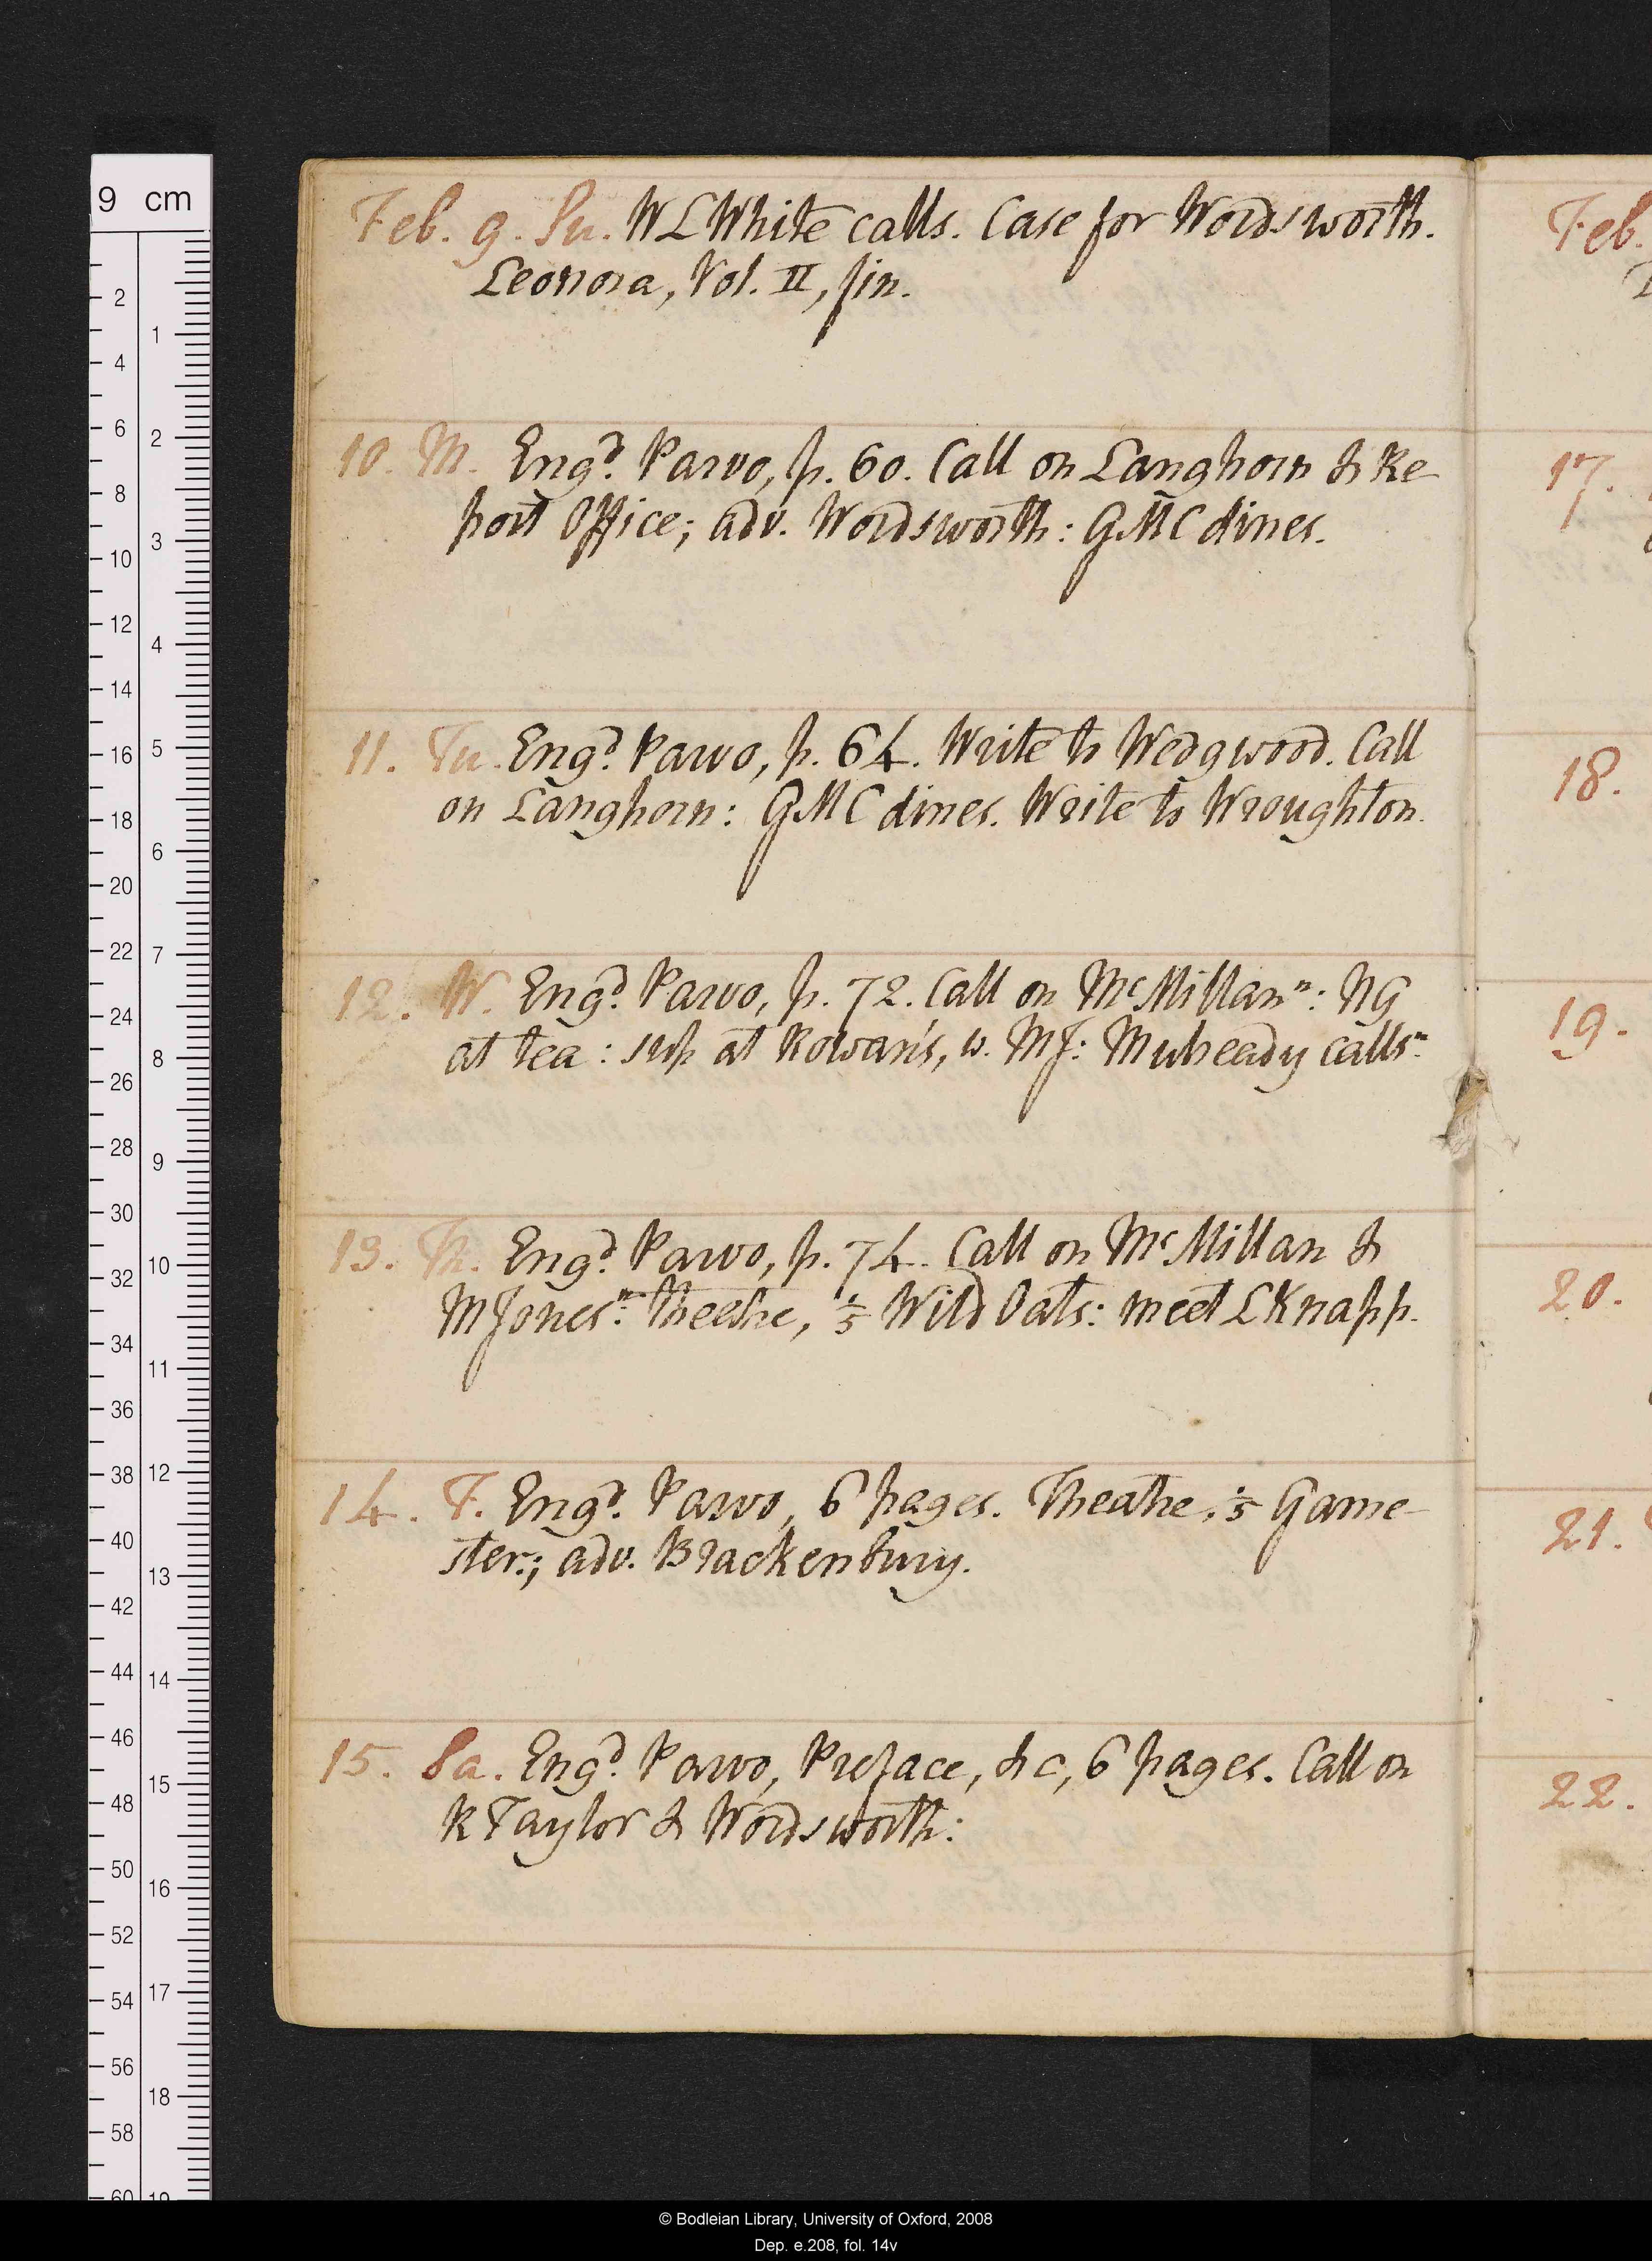 Feb. 9. Su. W L White calls. Case for Wordsworth.
Leonora, Vol. II, fin.
10. M. Eng.d Parvo, p. 60. Call on Langhorn & Re-
port Office; adv. Wordsworth: G M C dines.
11. Tu. Eng.d Parvo, p. 64. Write to Wedgwood. Call
on Langhorn: G M C dines. Write to Wroughton.
12. W. Eng.d Parvo, p. 72. Call on McMillan n: N G
at tea: sup at Rowan's, w. M J: Mulready calls n
13. Th. Eng.d Parvo, p. 74. Call on McMillan &
M Jones n: Theatre, Wild Oats: meet L Knapp.
14. F. Eng.d Parvo, 6 pages. Theatre, Game-
ster; adv. Brackenbury.
15. Sa. Eng.d Parvo, Preface, &c, 6 pages. Call on
R Taylor & Wordsworth:
Feb.
17.
18.
19.
20.
21.
22.
9 cm
2
4
6
8
10
12
14
16
18
20
22
24
26
28
30
32
34
36
38
40
42
44
46
48
50
52
54
56
58
60
1
2
3
4
5
6
7
8
9
10
11
12
13
14
15
16
17
18
19
© Bodleian Library, University of Oxford, 2008
Dep. e.208, fol. 14v